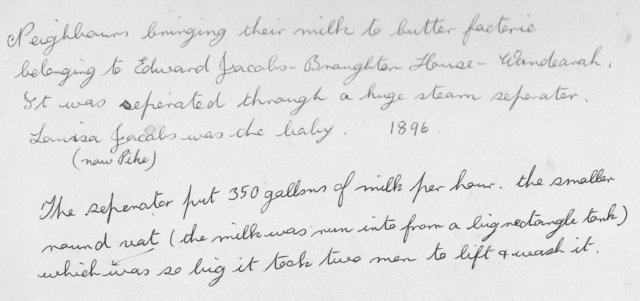 Neighbours bringing their milk to butter factorie
belonging to Edward Jacobs - Braughton House - Wandearah.
It was seperated through a huge steam seperator.
Louisa Jacobs was the baby. 1896
(now Pike)
The seperator put 350 gallons of milk per hour. the smaller
round vat (the milk was run into from a big rectangle tank)
which was so big it took two men to lift & wash it.